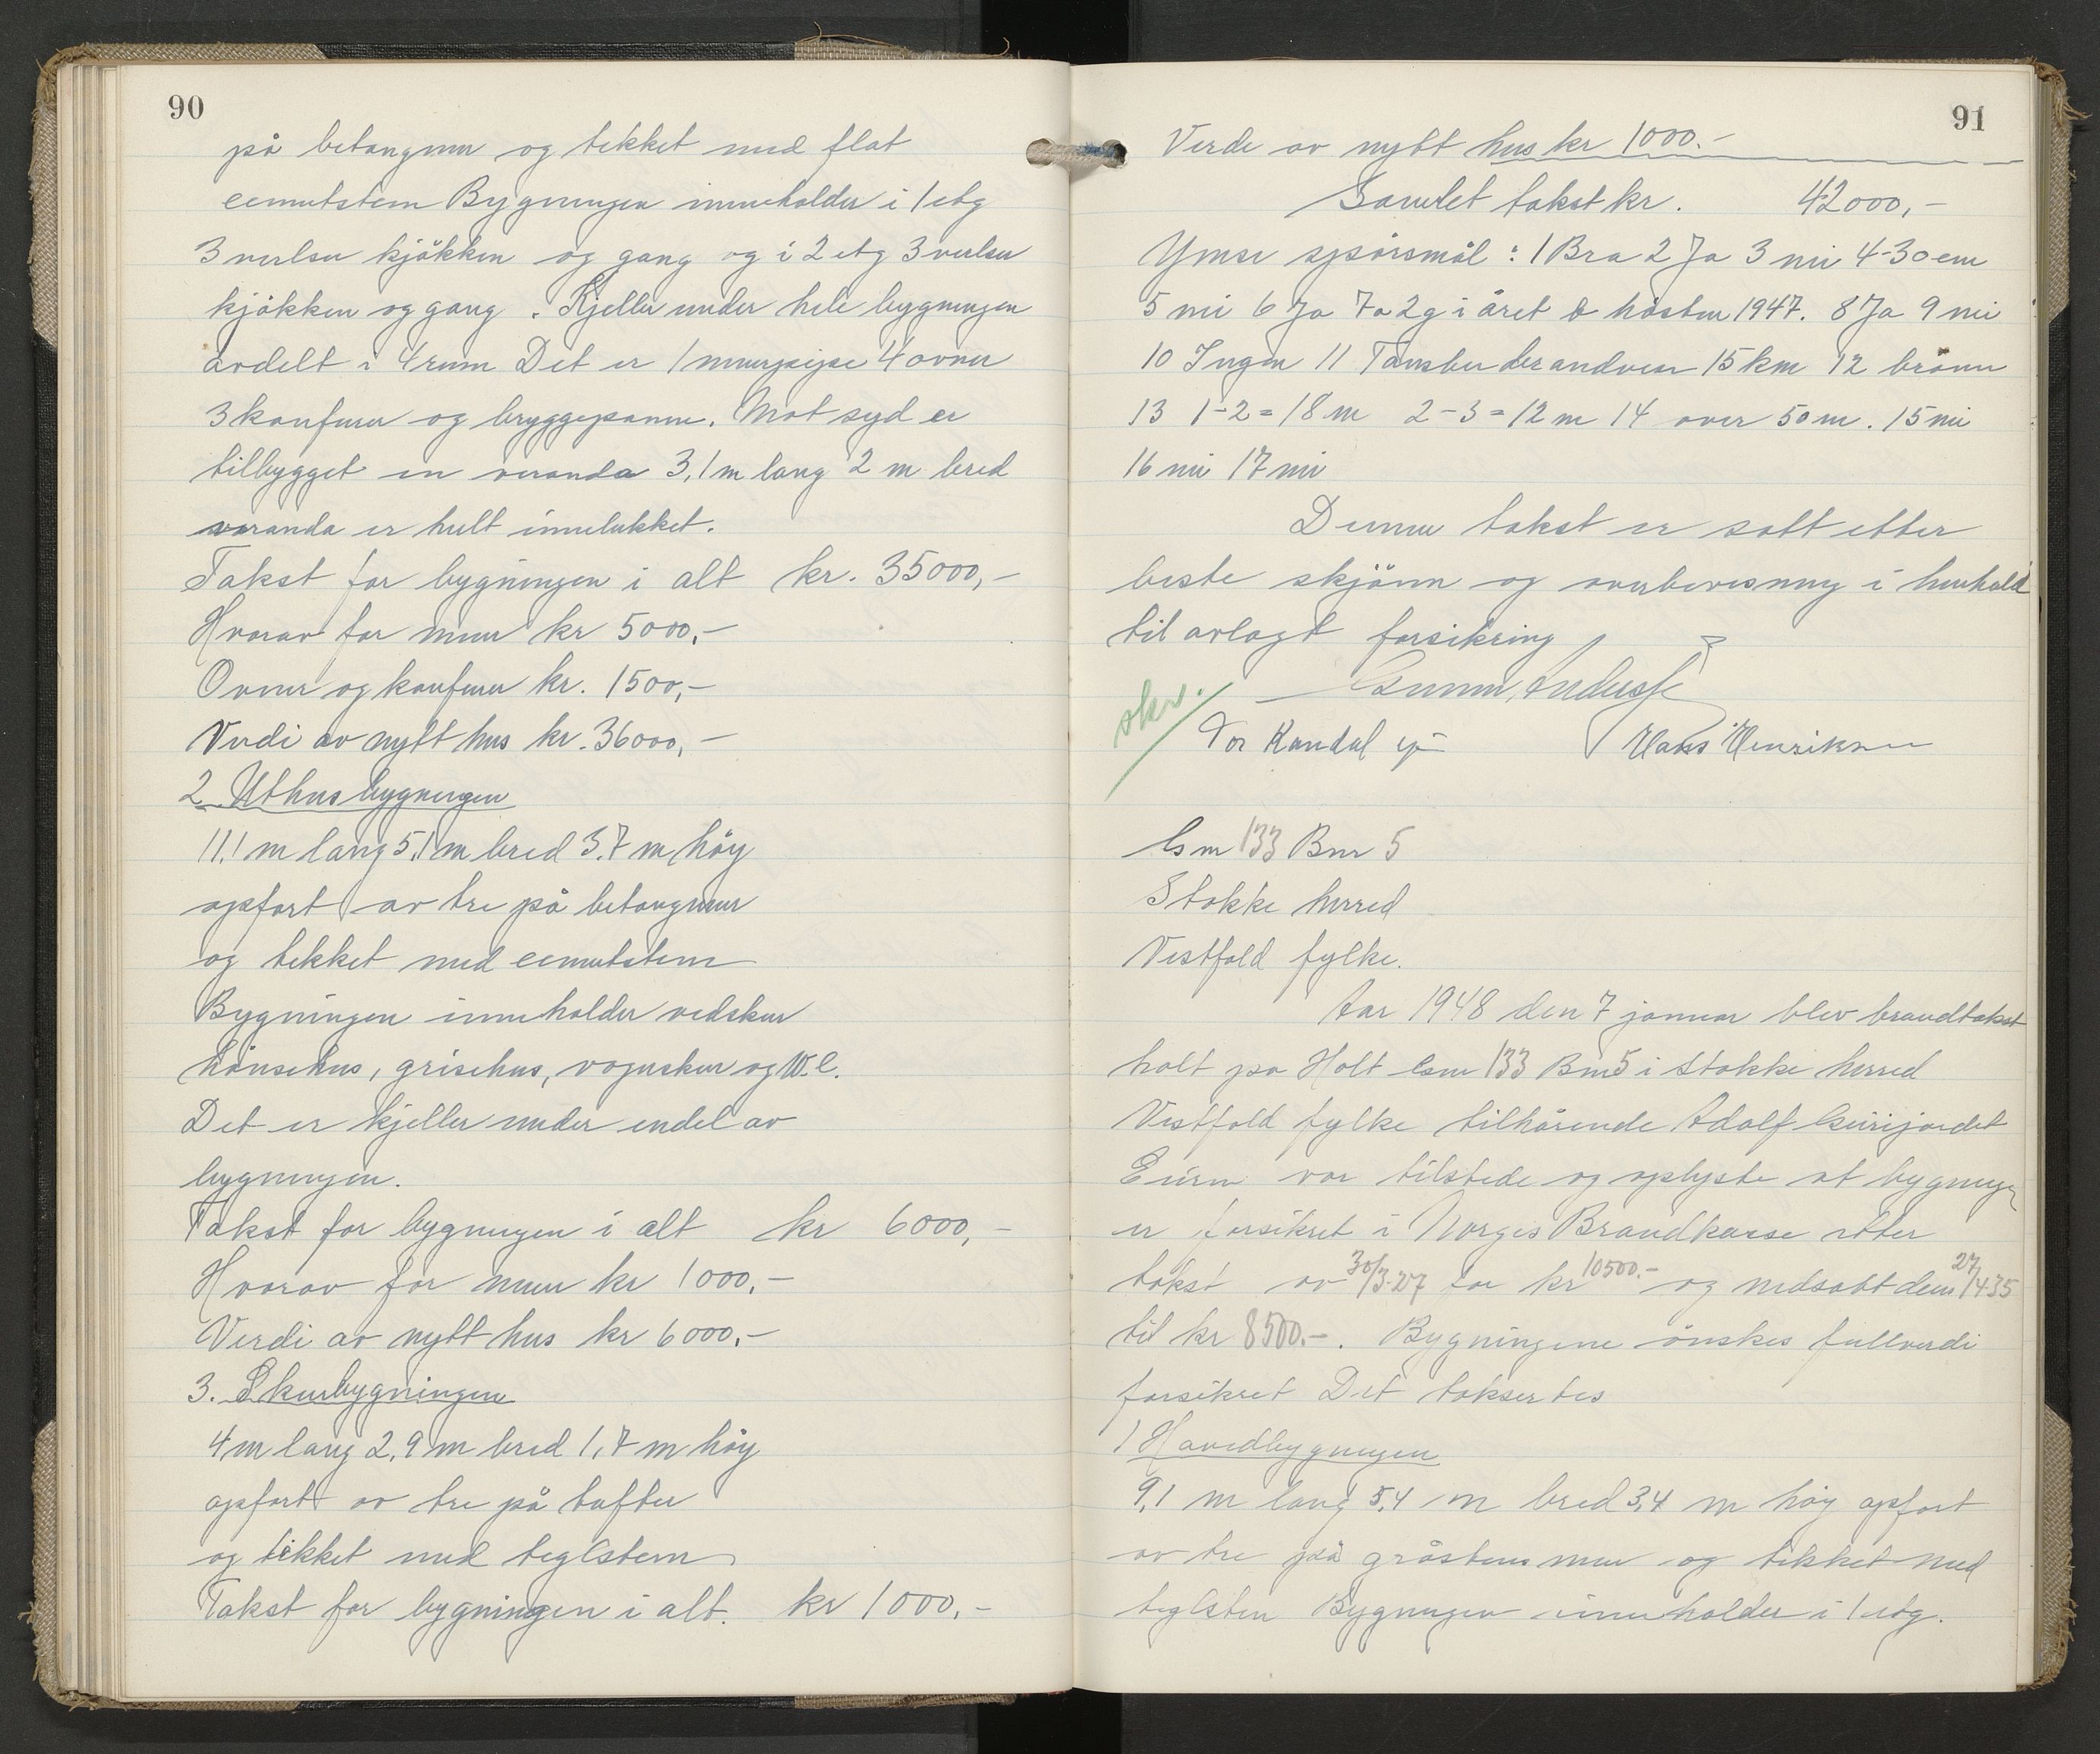 90
på betongmur og tekket med flat
cemutstem Bygningen inneholder i 1 etg
3 verlser kjökken og gang og i 2 etg 3 verlser
kjökken og gang. Kjeller under hele bygningen
avdelt i 4 rum Det er 1 murpipe 4 ovner
3 komfurer og bryggepanne. Mot syd er
tilbygget en veranda 3,1 m lang 2 m bred
veranda er helt innelukket.
Takst for bygningen i alt kr. 35000,-
Hvorav for mur kr 5000,-
Ovner og komfurer kr. 1500,-
Verdi av nytt hus kr. 36000,-
2 Uthusbygningen
11,1 m lang 5,1 m bred 3,7 m höy
opfört av tre på betongmur
og tekket med cemutstem
Bygningen inneholder vedskur
hönsehus, grisehus, vognskur og W.C.
Det er kjeller under endel av
bygningen.
Takst for bygningen i alt kr 6000,-
Hvorav for mur kr 1000,-
Verdi av nytt hus kr 6000,-
3. Skurbygningen
4 m lang 2,9 m bred 1,7 m höy
opfört av tre på tufter
og tekket med teglstem
Takst for bygningen i alt. kr 1000,-
91
Verde av nytt hus kr 1000.-
Samlet takst kr. 42000,-
Ymse spörsmål: 1 Bra 2 Ja 3 nei 4-30 cm
5 nei 6 Ja 7a 2 g i året b hösten 1947. 8 Ja 9 nei
10 Ingen 11 Tönsberg brandvesen 15 km 12 brönn
13 1-2 = 18 m 2-3 = 12 m 14 over 50 m. 15 nei
16 nei 17 nei
Denne takst er satt etter
beste skjönn og overbevisning i henhold
til avlagt forsikring
skrv.
Tor Kandal Hans Henriksen
Gnr 133 Bnr 5
Stokke herred
Vestfold fylke.
Aar 1948 den 7 januar blev brandtakst
holt på Holt Gnr 133 Bnr 5 i Stokke herred
Vestfold fylke tilhörende Adolf
Eieren var tilstede og oplyste at bygningen
er forsikret i Norges Brandkasse etter
takst av 30/3-27 for kr 10500.- og nedsatt den 27/4 35
til kr 8500.-. Bygningene önskes fullverdi
forsikret Det taksertes
1 Hovedbygningen
9,1 m lang 5,4 m bred 3,4 m höy opfört
av tre på gråstens mur og tekket med
teglsten Bygningen inneholder i 1 etg.